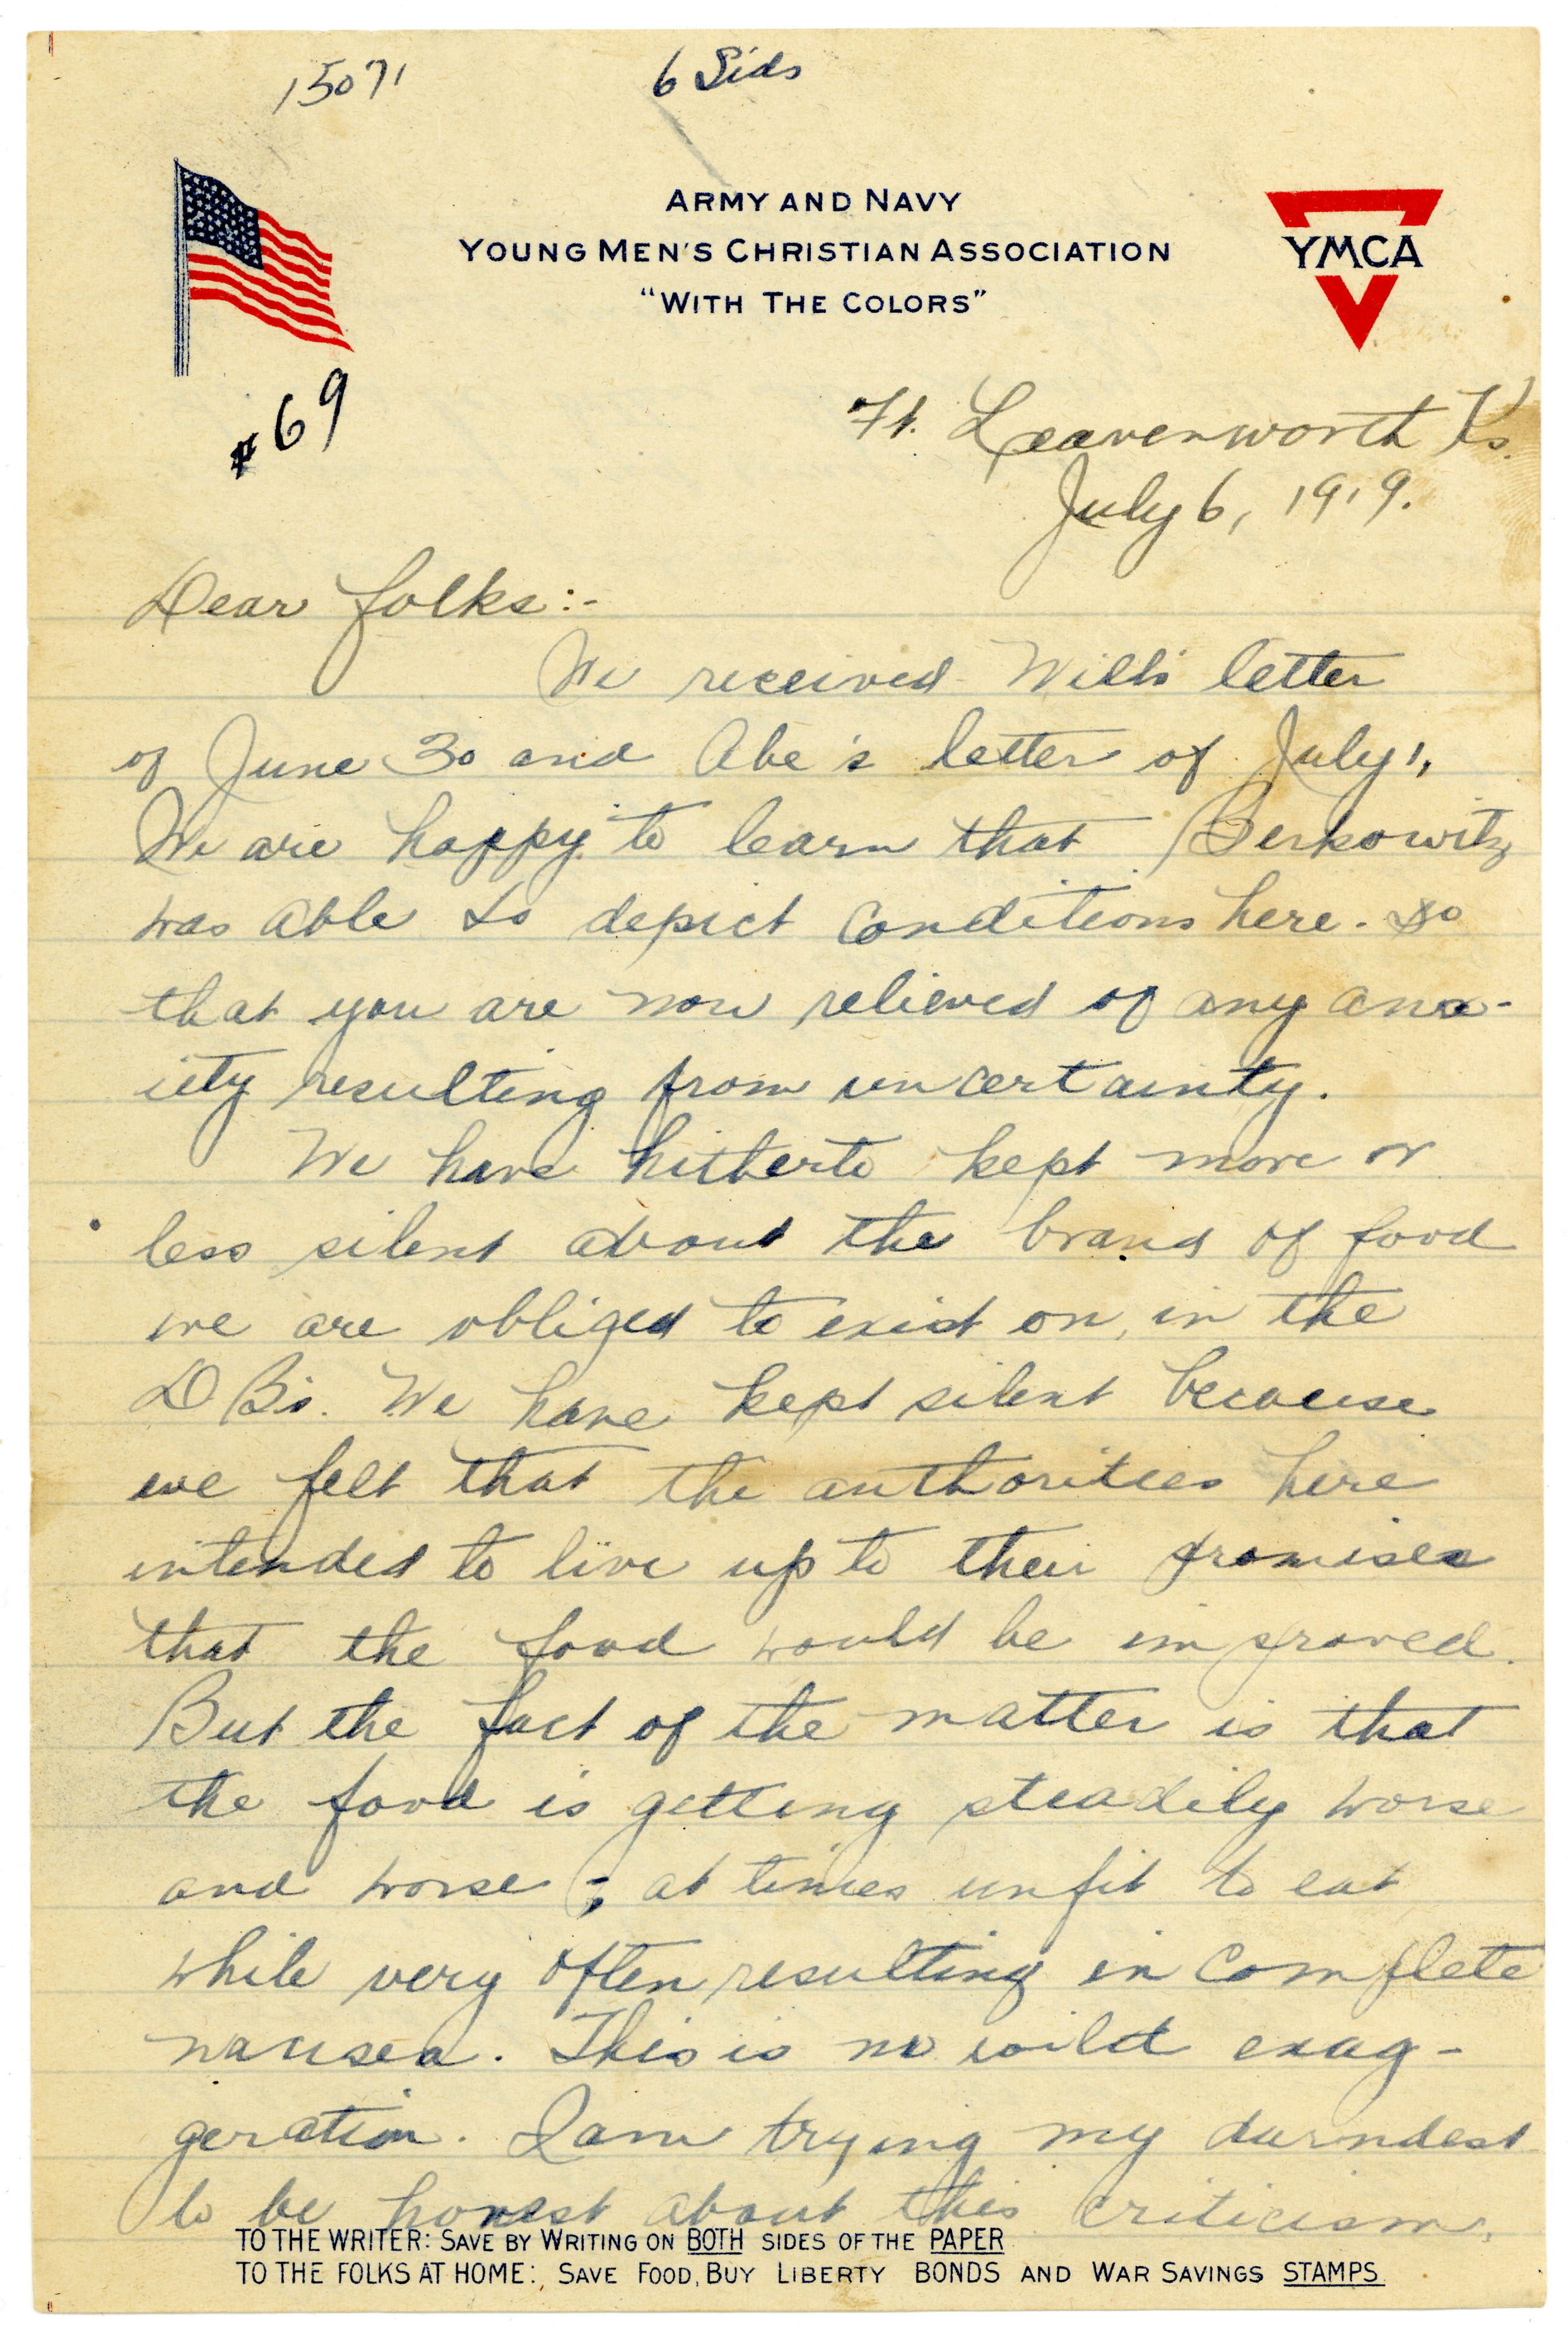 15071
6 Sids
ARMY AND NAVY
YOUNG MEN'S CHRISTIAN ASSOCIATION
"WITH THE COLORS"
YMCA
#69
Ft. Leavenworth Ks.
July 6, 1919.
Dear folks:-
We received Will's letter
of June 30 and Abe's letter of July 1,
We are happy to learn that Berkowitz
was able to depict conditions here. so
that you are now relieved of any anx-
iety resulting from uncertainty.
We have hitherto kept more or
less silent about the brand of food
we are obliged to exist on, in the
D B's. We have kept silent because
we felt that the authorities here
intended to live up to their promises
that the food would be improved.
But the fact of the matter is that
the food is getting steadily worse
and worse; at times unfit to eat
while very often resulting in complete
nausea. This is no wild exag-
geration. I am trying my darndest
to be honest about this criticism,
TO THE WRITER: SAVE BY WRITING ON BOTH SIDES OF THE PAPER
TO THE FOLKS AT HOME: SAVE FOOD, BUY LIBERTY BONDS AND WAR SAVINGS STAMPS